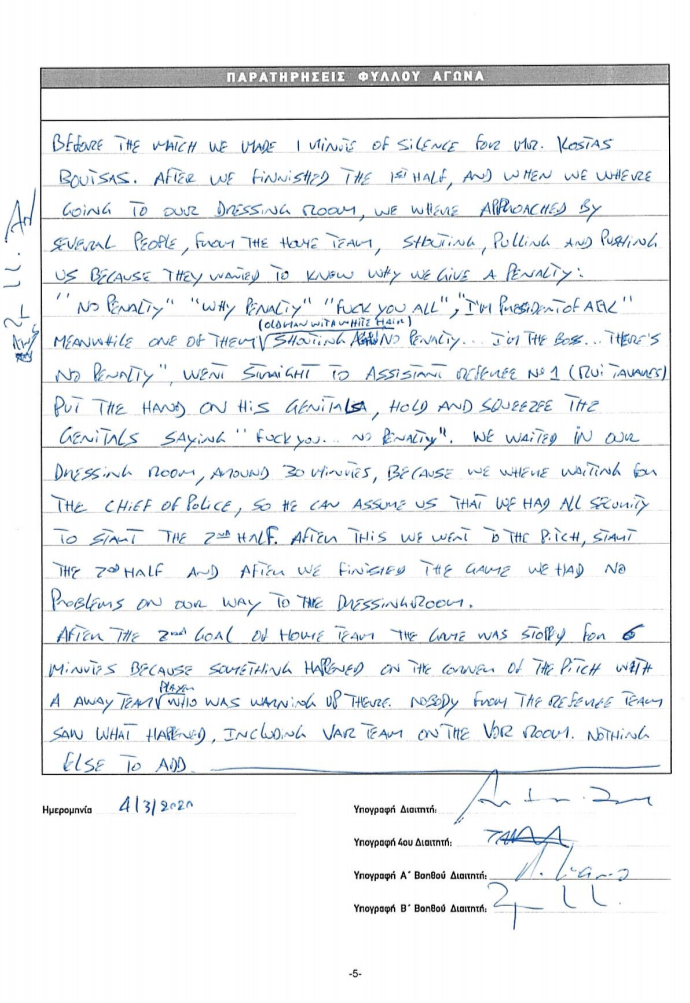 ΠΑΡΑΤΗΡΗΣΕΙΣ ΦΥΛΛΟΥ ΑΓΩΝΑ
BEFORE THE MATCH WE MADE 1 MINUTE OF SILENCE FOR MR. KOSTAS
BOUTSAS. AFTER WE FINNISHED THE 1st HALF, AND WHEN WE WHERE
GOING TO OUR DRESSING ROOM, WE WHERE APPROACHED BY
SEVERAL PEOPLE, FROM THE HOME TEAM, SHOUTING, PULLING AND PUSHING
US BECAUSE THEY WANTED TO KNEW WHY WE GIVE A PENALTY:
"NO PENALTY" "WHY PENALTY" "FUCK YOU ALL", "I'M PRESIDENT OF AEK"
(OLD MAN WITH WHITE HAIR)
MEANWHILE ONE OF THEM SHOUTING NO PENALTY... I'M THE BOSS... THERE'S
NO PENALTY", WENT STRAIGHT TO ASSISTANT REFEREE Nº1 (RUI TAVARES)
PUT THE HAND ON HIS GENITALS, HOLD AND SQUEEZEE THE
GENITALS SAYING "FUCK YOU... NO PENALTY". WE WAITED IN OUR
DRESSING ROOM, AROUND 30 MINUTES, BECAUSE WE WHERE WAITING FOR
THE CHIEF OF POLICE, SO HE CAN ASSUME US THAT WE HAD ALL SECURITY
TO START THE 2nd HALF. AFTER THIS WE WENT TO THE PITCH, START
THE 2nd HALF AND AFTER WE FINISHED THE GAME WE HAD NO
PROBLEMS ON OUR WAY TO THE DRESSINGROOM.
AFTER THE 2nd GOAL OF HOME TEAM THE GAME WAS STOPED FOR 6
MINUTES BECAUSE SOMETHING HAPPENED ON THE CORNER OF THE PITCH WITH
PLAYER
A AWAY TEAM WHO WAS WARNING UP THERE. NOBODY FROM THE REFEREE TEAM
SAW WHAT HAPPENED, INCLUDING VAR TEAM ON THE VOR ROOM. NOTHING
ELSE TO ADD.
Ημερομηνία 4/3/2020
Υπογραφή Διαιτητή:
Υπογραφή 4ου Διαιτητή:
Υπογραφή Α΄ Βοηθού Διαιτητή:
Υπογραφή Β΄ Βοηθού Διαιτητή:
-5-